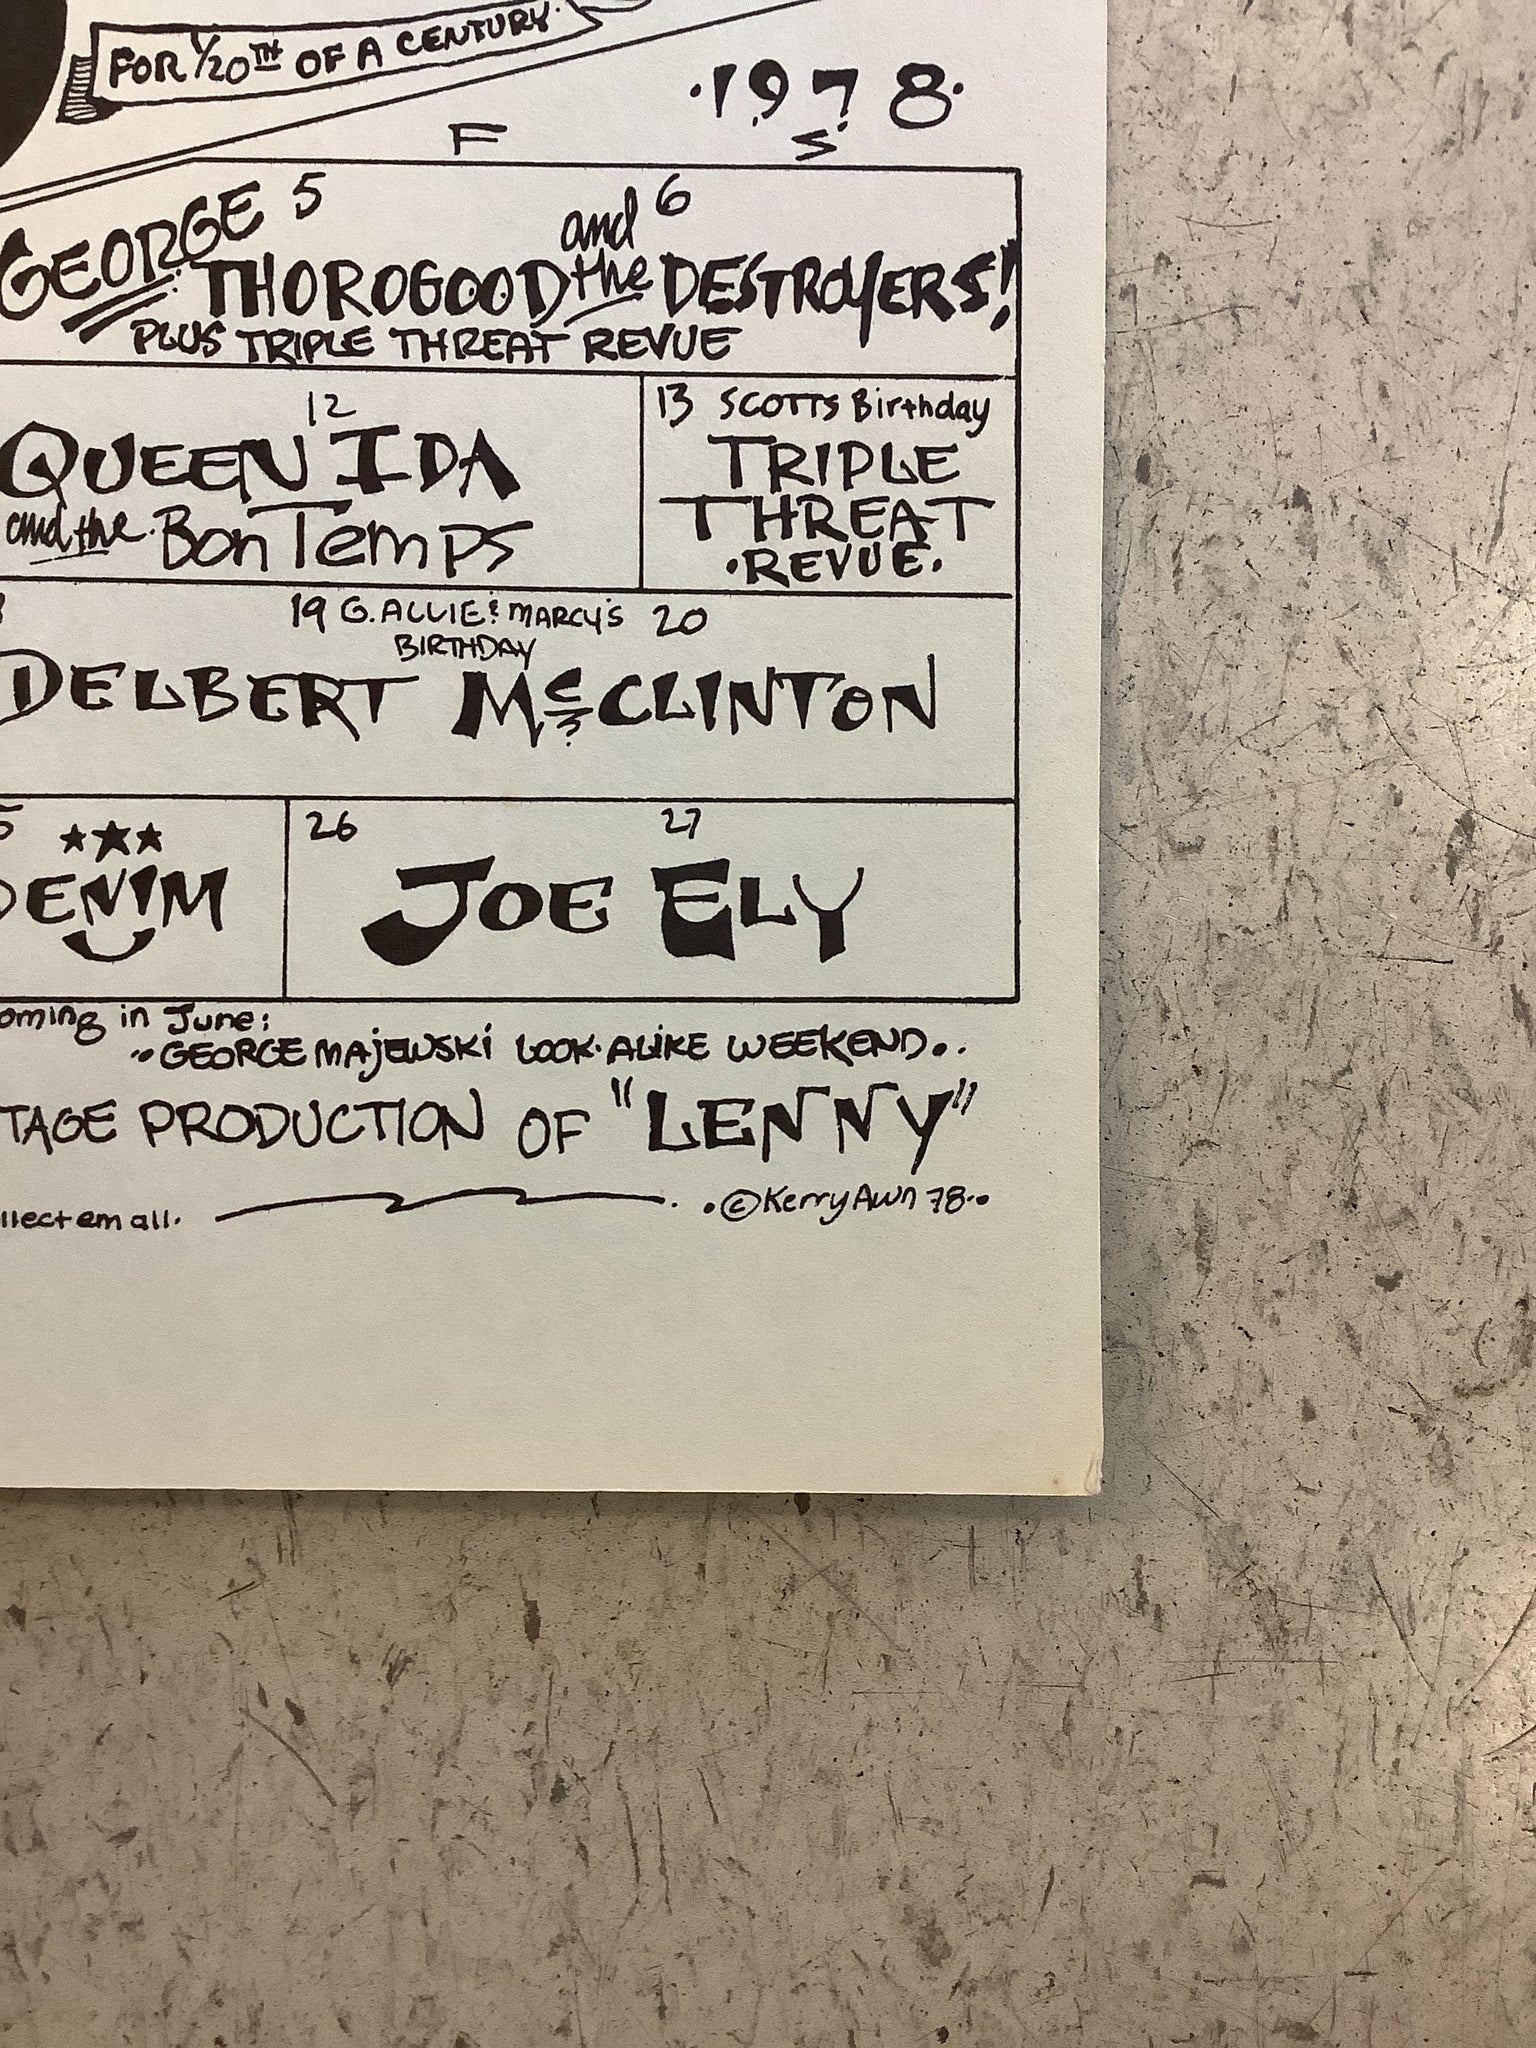 FOR 1/20TH OF A CENTURY.
·1978·
F S
5 and 6
GEORGE THOROGOOD the DESTROYERS!
PLUS TRIPLE THREAT REVUE
12
QUEEN IDA
and the BonTemps
13 SCOTTS Birthday
TRIPLE
THREAT
·REVUE·
19 G. ALLIE & MARCY'S 20
BIRTHDAY
DELBERT McCLINTON
DENIM
26 27
JOE ELY
oming in June:
GEORGE MAJEWSKI LOOK·ALIKE WEEKEND..
TAGE PRODUCTION OF "LENNY"
llect em all. ·©Kerry Awn 78··